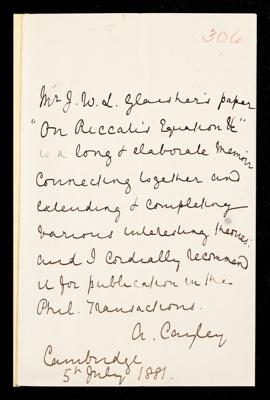 306
Mr J. W. L. Glaisher's paper
"On Riccati's Equation &c"
is a long & elaborate Memoir
connecting together and
extending & completing
various interesting theories:
and I cordially recommend
it for publication in the
Phil. Transactions.
A. Cayley
Cambridge
5th July 1881.